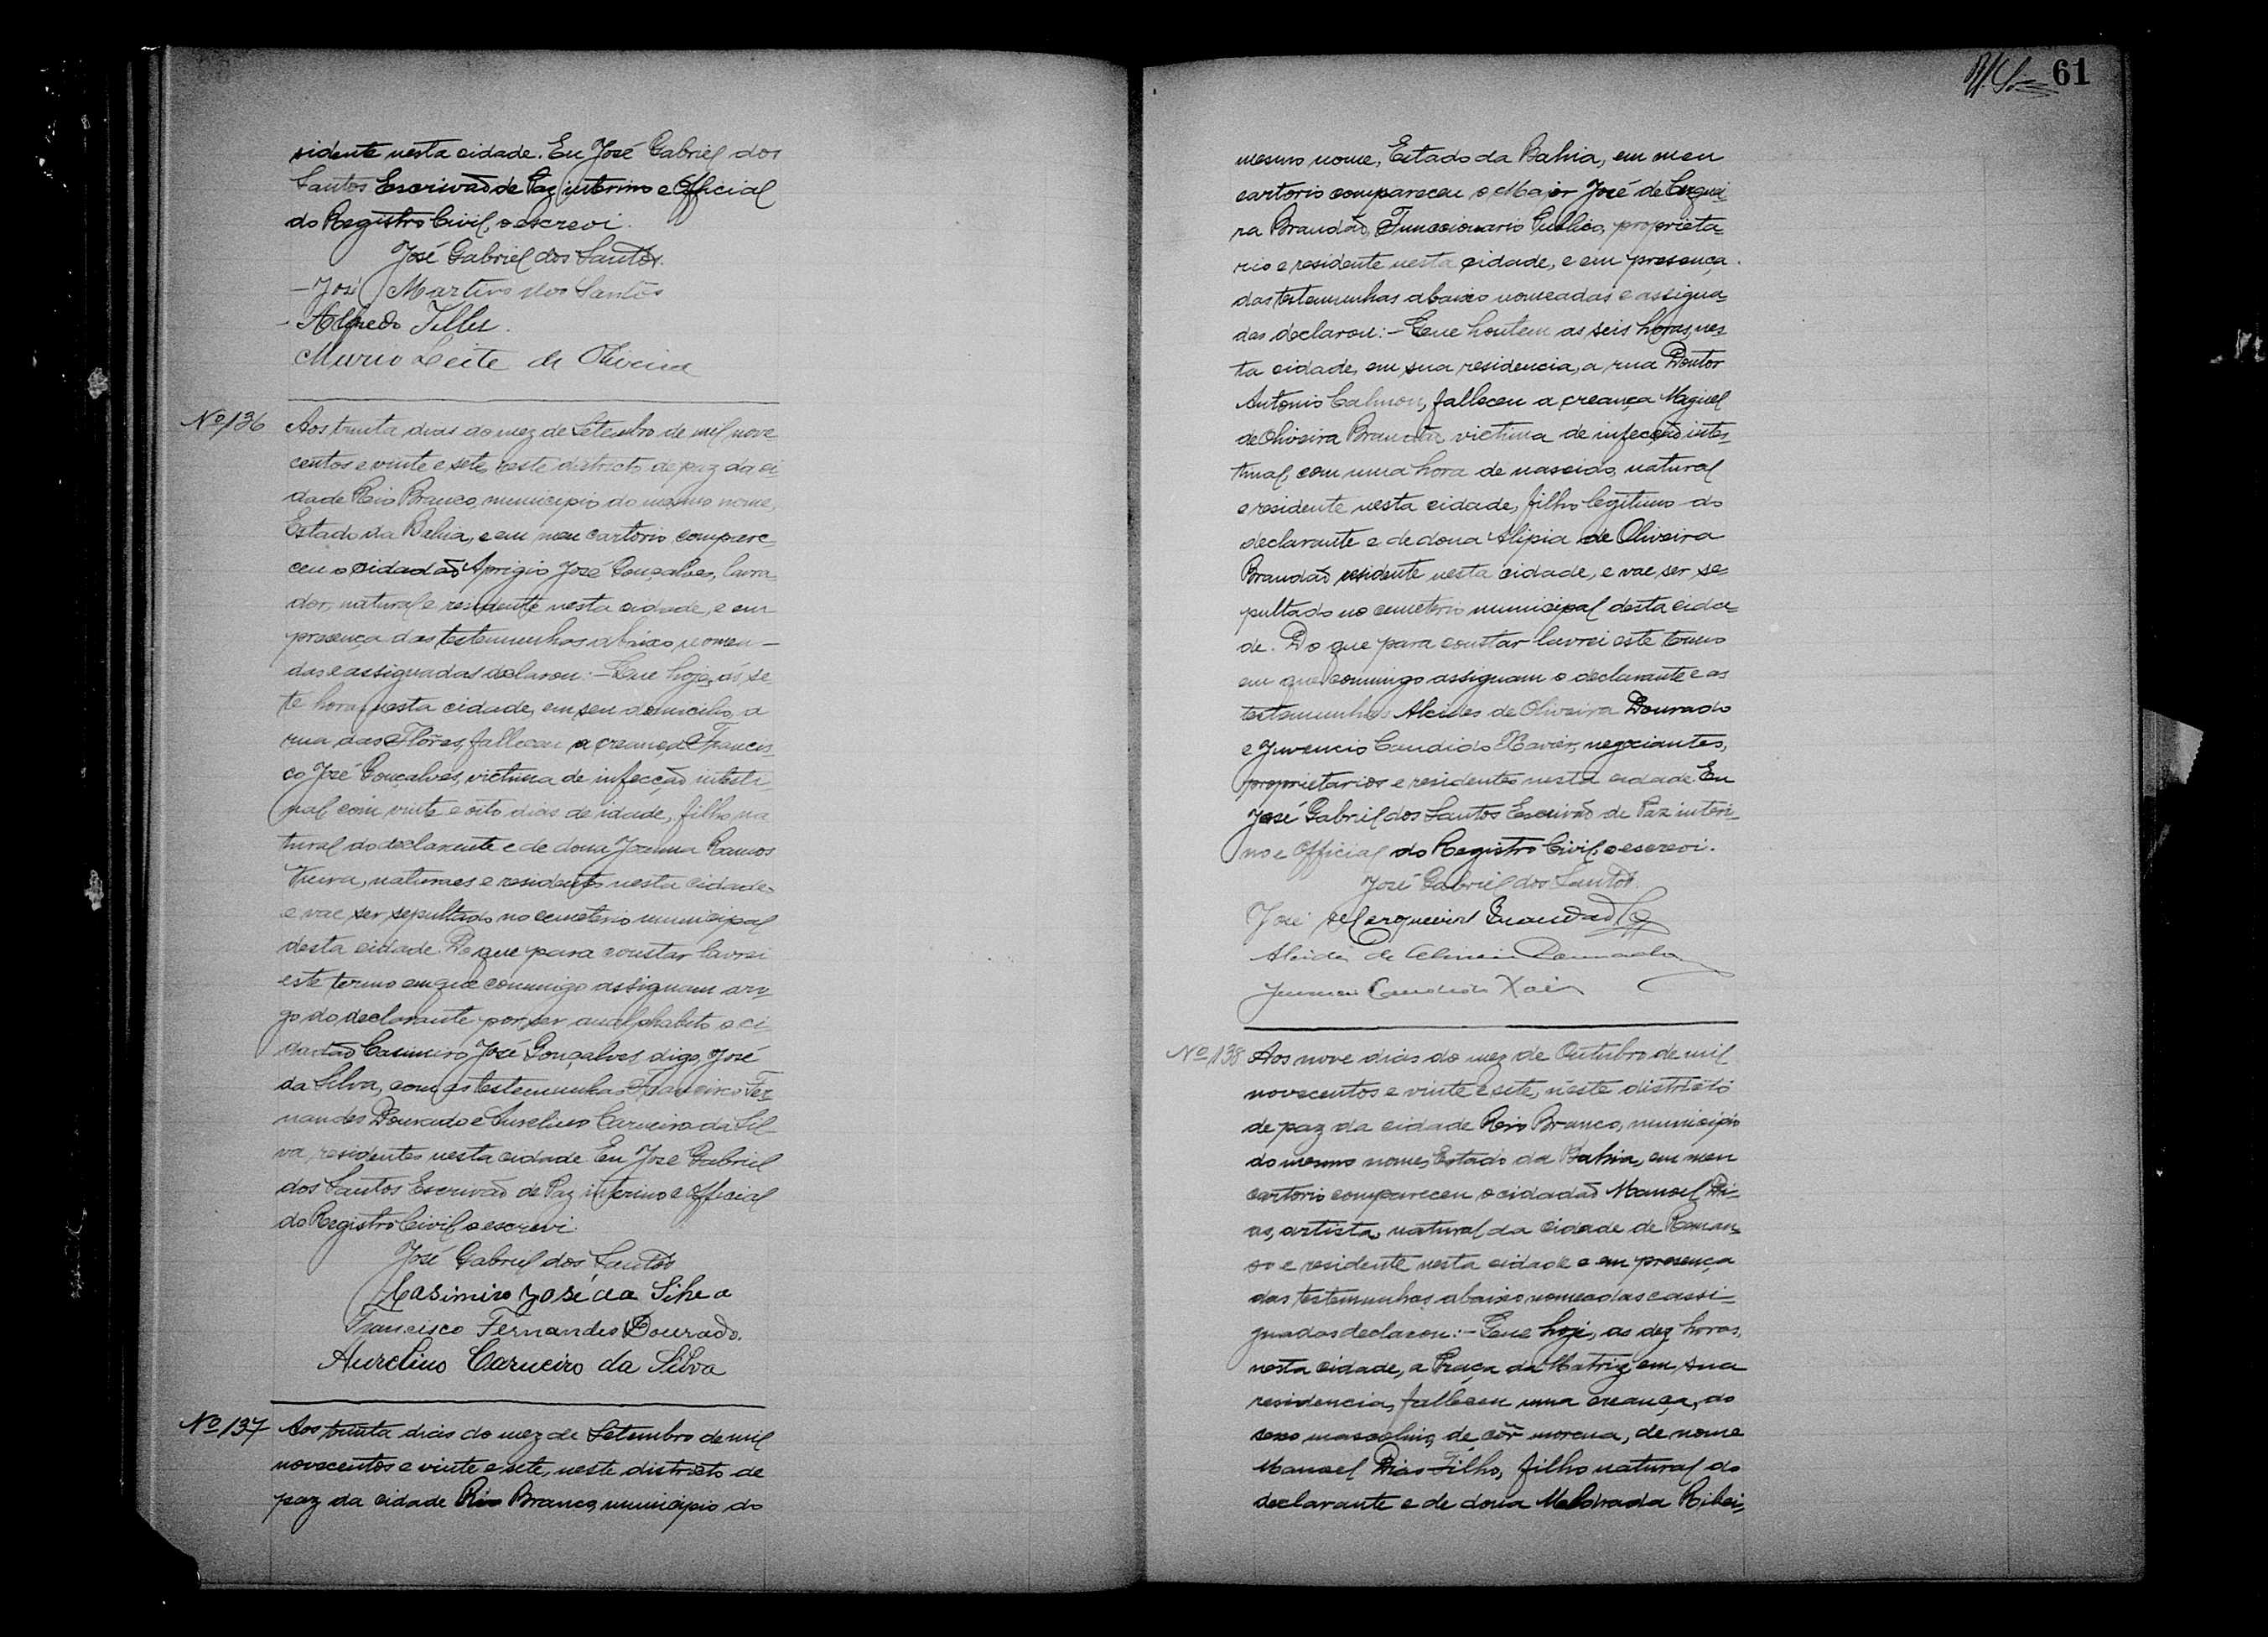 sidente nesta cidade. Eu José Gabriel dos
Santos Escrivão de Paz interino e Official
do Registro Civil, o escrevi.
José Gabriel dos Santos.
José Martins dos Santos
Alfredo Telles.
Murio Leite de Oliveira
Nº 136 Aos trinta dias do mez de Setembro de mil nove
centos e vinte e sete, neste districto de paz da ci-
dade Rio Branco, municipio do mesmo nome,
Estado da Bahia, e em meu cartorio, compare-
ceu o cidadão Aprigio José Gonçalves, lavra-
dor, natural e residente nesta cidade, e em
presença das testemunhas abaixo nomea-
das e assignadas declarou:- Que hoje, ás se-
te horas, nesta cidade, em seu domicilio, a
rua das Flôres, falleceu a creança Francis-
co José Gonçalves, victima de infecção intesti-
nal, com vinte e oito dias de idade, filho na
tural do declarante e de dona Joanna Ramos
naturaes e residentes nesta cidade,
e vae ser sepultado no cemeterio municipal
desta cidade. Do que para constar lavrei
este termo em que commigo assignam a ro-
go do declarante por ser analphabeto o ci-
dadão Casimiro José Gonçalves digo, José
da Silva, com as testemunhas Francisco Fer-
nandes Dourado e Aurelino Carneiro da Sil-
va, residentes nesta cidade. Eu José Gabriel
dos Santos Escrivão de Paz interino e Official
do Registro Civil, o escrevi.
José Gabriel dos Santos
Casimiro José da Silva
Francisco Fernandes Dourado.
Aurelino Carneiro da Silva
Nº 137 Aos trinta dias do mez de Setembro de mil
novecentos e vinte e sete, neste districto de
paz da cidade Rio Branco, municipio do
61
mesmo nome, Estado da Bahia, em meu
cartorio compareceu o Major José de Cerquei-
ra Brandão, Funccionario Publico, proprieta-
rio e residente nesta cidade, e em presença
das testemunhas abaixo nomeadas e assigna-
das declarou:- Que hontem as seis horas, nes-
ta cidade, em sua residencia, a rua Doutor
Antonio Calmon, falleceu a creança Miguel
de Oliveira Brandão victima de infecção intes-
tinal, com uma hora de nascido, natural
e residente nesta cidade, filho legitimo do
declarante e de dona Alipia de Oliveira
Brandão residente nesta cidade, e vae ser se-
pultado no cemeterio municipal desta cida-
de. Do que para constar lavrei este termo
em que commigo assignam o declarante e as
testemunhas Alcides de Oliveira Dourado
e Juvencio Candido Xavier, negociantes,
proprietarios e residentes nesta cidade. Eu
José Gabriel dos Santos Escrivão de Paz interi-
no e Official do Registro Civil, o escrevi.
José Gabriel dos Santos.
José de Cerqueira Brandão
Alcides de Oliveira Dourado
Juvencio Candido Xavier
Nº 138 Aos nove dias do mez de Outubro de mil
novecentos e vinte e sete, neste districto
de paz da cidade Rio Branco, municipio
do mesmo nome, Estado da Bahia, em meu
cartorio compareceu o cidadão Manoel Di-
as, artista, natural da cidade de Reman-
so e residente nesta cidade e em presença
das testemunhas abaixo nomeadas e assi-
gnadas declarou:- Que hoje, as dez horas,
nesta cidade, a Praça da Matriz, em sua
residencia, falleceu uma creança, do
sexo masculino, de côr morena, de nome
Manoel Dias Filho, filho natural do
declarante e de dona Ribei-